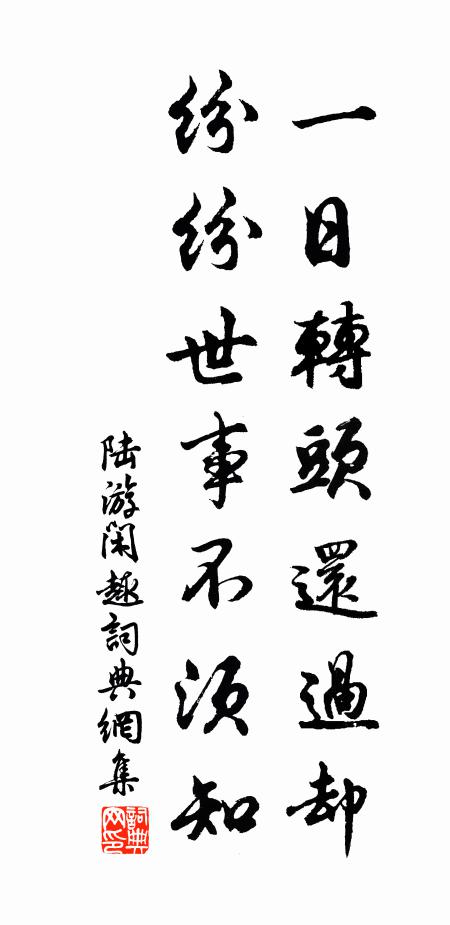 一日轉頭還過却
紛紛世事不須知
陆游闲趣詞典網集
詞典网印